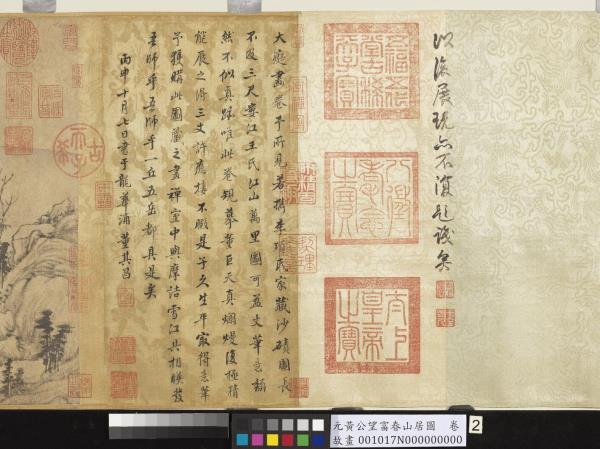 以後展玩亦不復題識矣
八徵耄念之寶
太上皇帝之寶
大癡畫卷予所見若檇李項氏家藏沙磧圖長
不及三尺婁江王氏江山萬里圖可盈丈筆意頹
然不似真跡唯此卷規摹董巨天真爛熳復極精
能展之得三丈許應接不暇是子久生平最得意筆
予獲購此圖藏之畫禪室中與摩詰雪江共相映發
吾師乎吾師乎一丘五岳都具是矣
丙申十月七日書于龍華浦 董其昌
古稀天子
元黃公望富春山居圖 卷
故畫 001017N000000000
2